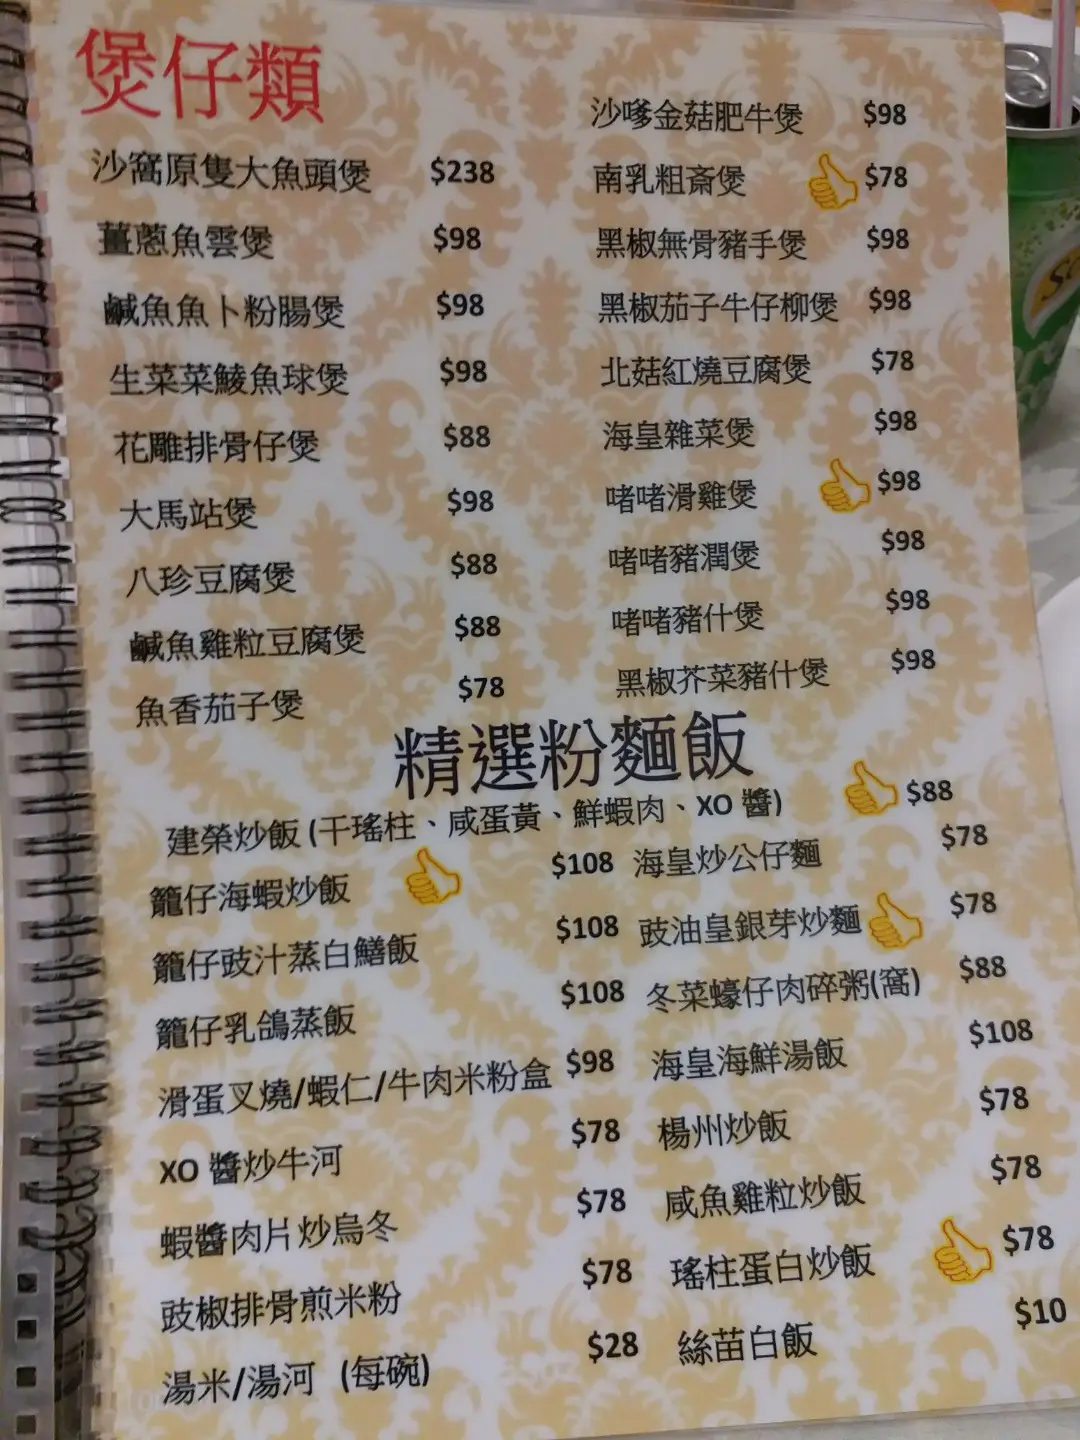 煲仔類
沙窩原隻大魚頭煲 $238
薑蔥魚雲煲 $98
鹹魚魚卜粉腸煲 $98
生菜菜鯪魚球煲 $98
花雕排骨仔煲 $88
大馬站煲 $98
八珍豆腐煲 $88
鹹魚雞粒豆腐煲 $88
魚香茄子煲 $78
沙嗲金菇肥牛煲 $98
南乳粗斎煲 $78
黑椒無骨豬手煲 $98
黑椒茄子牛仔柳煲 $98
北菇紅燒豆腐煲 $78
海皇雜菜煲 $98
啫啫滑雞煲 $98
啫啫豬潤煲 $98
啫啫豬什煲 $98
黑椒芥菜豬什煲 $98
精選粉麵飯
建榮炒飯 (干瑤柱、咸蛋黃、鮮蝦肉、XO 醬) $88
籠仔海蝦炒飯 $108
籠仔豉汁蒸白鱔飯 $108
籠仔乳鴿蒸飯 $108
滑蛋叉燒/蝦仁/牛肉米粉盒 $98
XO 醬炒牛河 $78
蝦醬肉片炒烏冬 $78
豉椒排骨煎米粉 $78
湯米/湯河 (每碗) $28
海皇炒公仔麵 $78
豉油皇銀芽炒麵 $78
冬菜蠔仔肉碎粥(窩) $88
海皇海鮮湯飯 $108
楊州炒飯 $78
咸魚雞粒炒飯 $78
瑤柱蛋白炒飯 $78
絲苗白飯 $10